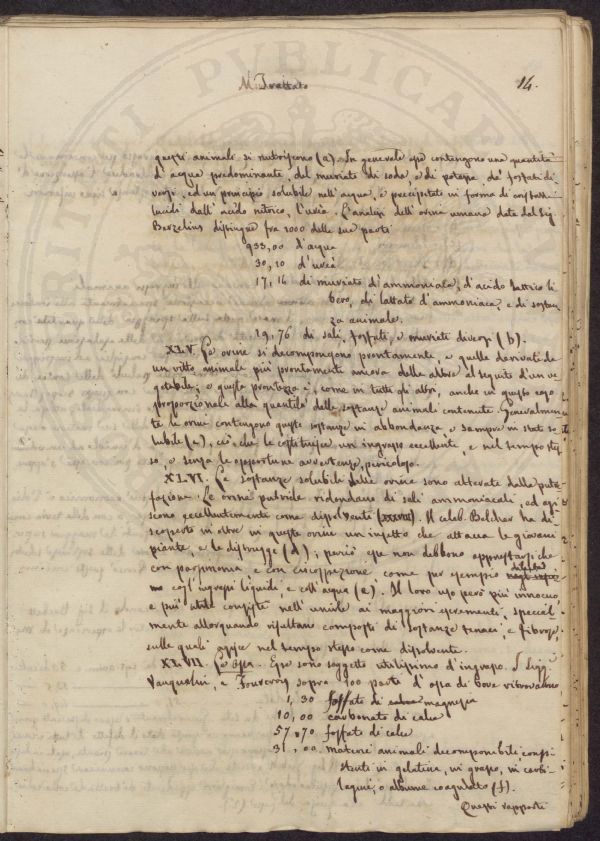 Trattato
14.
questi animali si nutriscono (a). In generale esse contengono una quantità
d'acqua predominante, del muriato di soda, e di potassa, de' fosfati di-
versi, ed un principio solubile nell'acqua, e precipitato in forma di cristalli
lucidi dall'acido nitrico, l'urea. L'analisi dell'orina umana data dal Sig.
Berzelius distingue fra 1000 delle sue parti
933,00 d'acqua
30,10 d'urea
17,16 di muriato d'ammoniaca, d'acido lattico li
bero, di lattato d'ammoniaca, e di sostan
za animale.
19,76 di sali, fosfati, e muriati diversi (b).
XLV. Le orine si decompongono prontamente, e quelle derivate da
un vitto animale più prontamente ancora delle altre al seguito d'un ve
getabile; e questa prontezza è, come in tutti gli altri, anche in questo caso
proporzionale alla quantità delle sostanze animali contenute. Generalmen
te le orine contengono queste sostanze in abbondanza, e sempre in stato so
lubile (c), ciò, che le costituisce un ingrasso eccellente, e nel tempo stes
so, e senza le opportune avvertenze, pericoloso.
XLVI. Le sostanze solubili delle orine sono alterate dalla putre
fazione. Le orine putride ridondano di sali ammoniacali, ed agi
scono eccellentemente come dissolventi. Il celeb. Belcher ha di
scoperto in oltre in queste orine un insetto che attacca le giovani
piante, e le distrugge (d); perciò esse non debbono apprestarsi che
con parsimonia e con circospezione come per esempio diluted
cogl'ingrassi liquidi, e coll'acqua (e). Il loro uso però più innocuo
e più utile consiste nell'unirle ai maggiori escrementi, special
mente allorquando risultano composti di sostanze tenaci e fibrose,
sulle quali agisce nel tempo stesso come dissolvente.
XLVII. Le Ossa. Esse sono soggetto utilissimo d'ingrasso. I Sigg.
Vauquelin, e Fourcroy sopra 100 parti d'ossa di bove ritrovarono
1,30 fosfato di magnesia
10,00 carbonato di calce
57,70 fosfato di calce
31,00 materie animali decomponibili consi
stenti in gelatina, in grasso, in carti
lagini, o albume coagulato (f).
Questi rapporti